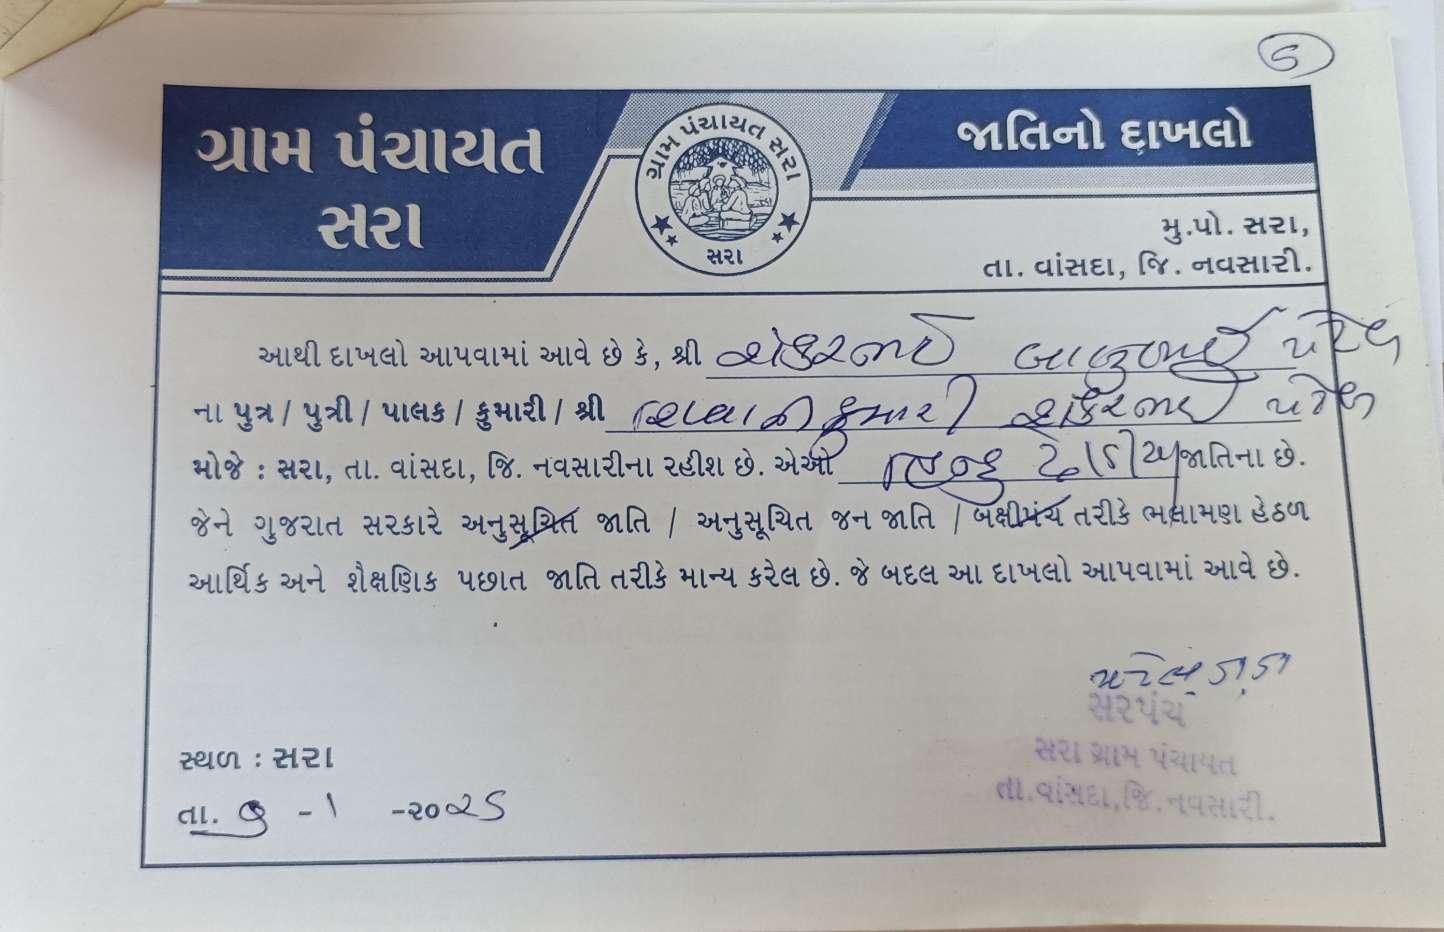 ૬
ગ્રામ પંચાયત
સરા
ગ્રામ પંચાયત સરા
સરા
જાતિનો દાખલો
મુ.પો. સરા,
તા. વાંસદા, જિ. નવસારી.
આથી દાખલો આપવામાં આવે છે કે, શ્રી શંકરભાઈ બાબુભાઈ પટેલ
ના પુત્ર / પુત્રી / પાલક / કુમારી / શ્રી શિવાનીકુમારી શંકરભાઈ પટેલ
મોજે : સરા, તા. વાંસદા, જિ. નવસારીના રહીશ છે. એઓ હિન્દુ ઢોડીયા જાતિના છે.
જેને ગુજરાત સરકારે અનુસૂચિત જાતિ / અનુસૂચિત જન જાતિ / બક્ષીપંચ તરીકે ભલામણ હેઠળ
આર્થિક અને શૈક્ષણિક પછાત જાતિ તરીકે માન્ય કરેલ છે. જે બદલ આ દાખલો આપવામાં આવે છે.
સરપંચ
સરા ગ્રામ પંચાયત
તા.વાંસદા,જિ.નવસારી.
સ્થળ : સરા
તા. ૭ - ૧ -૨૦૨૫